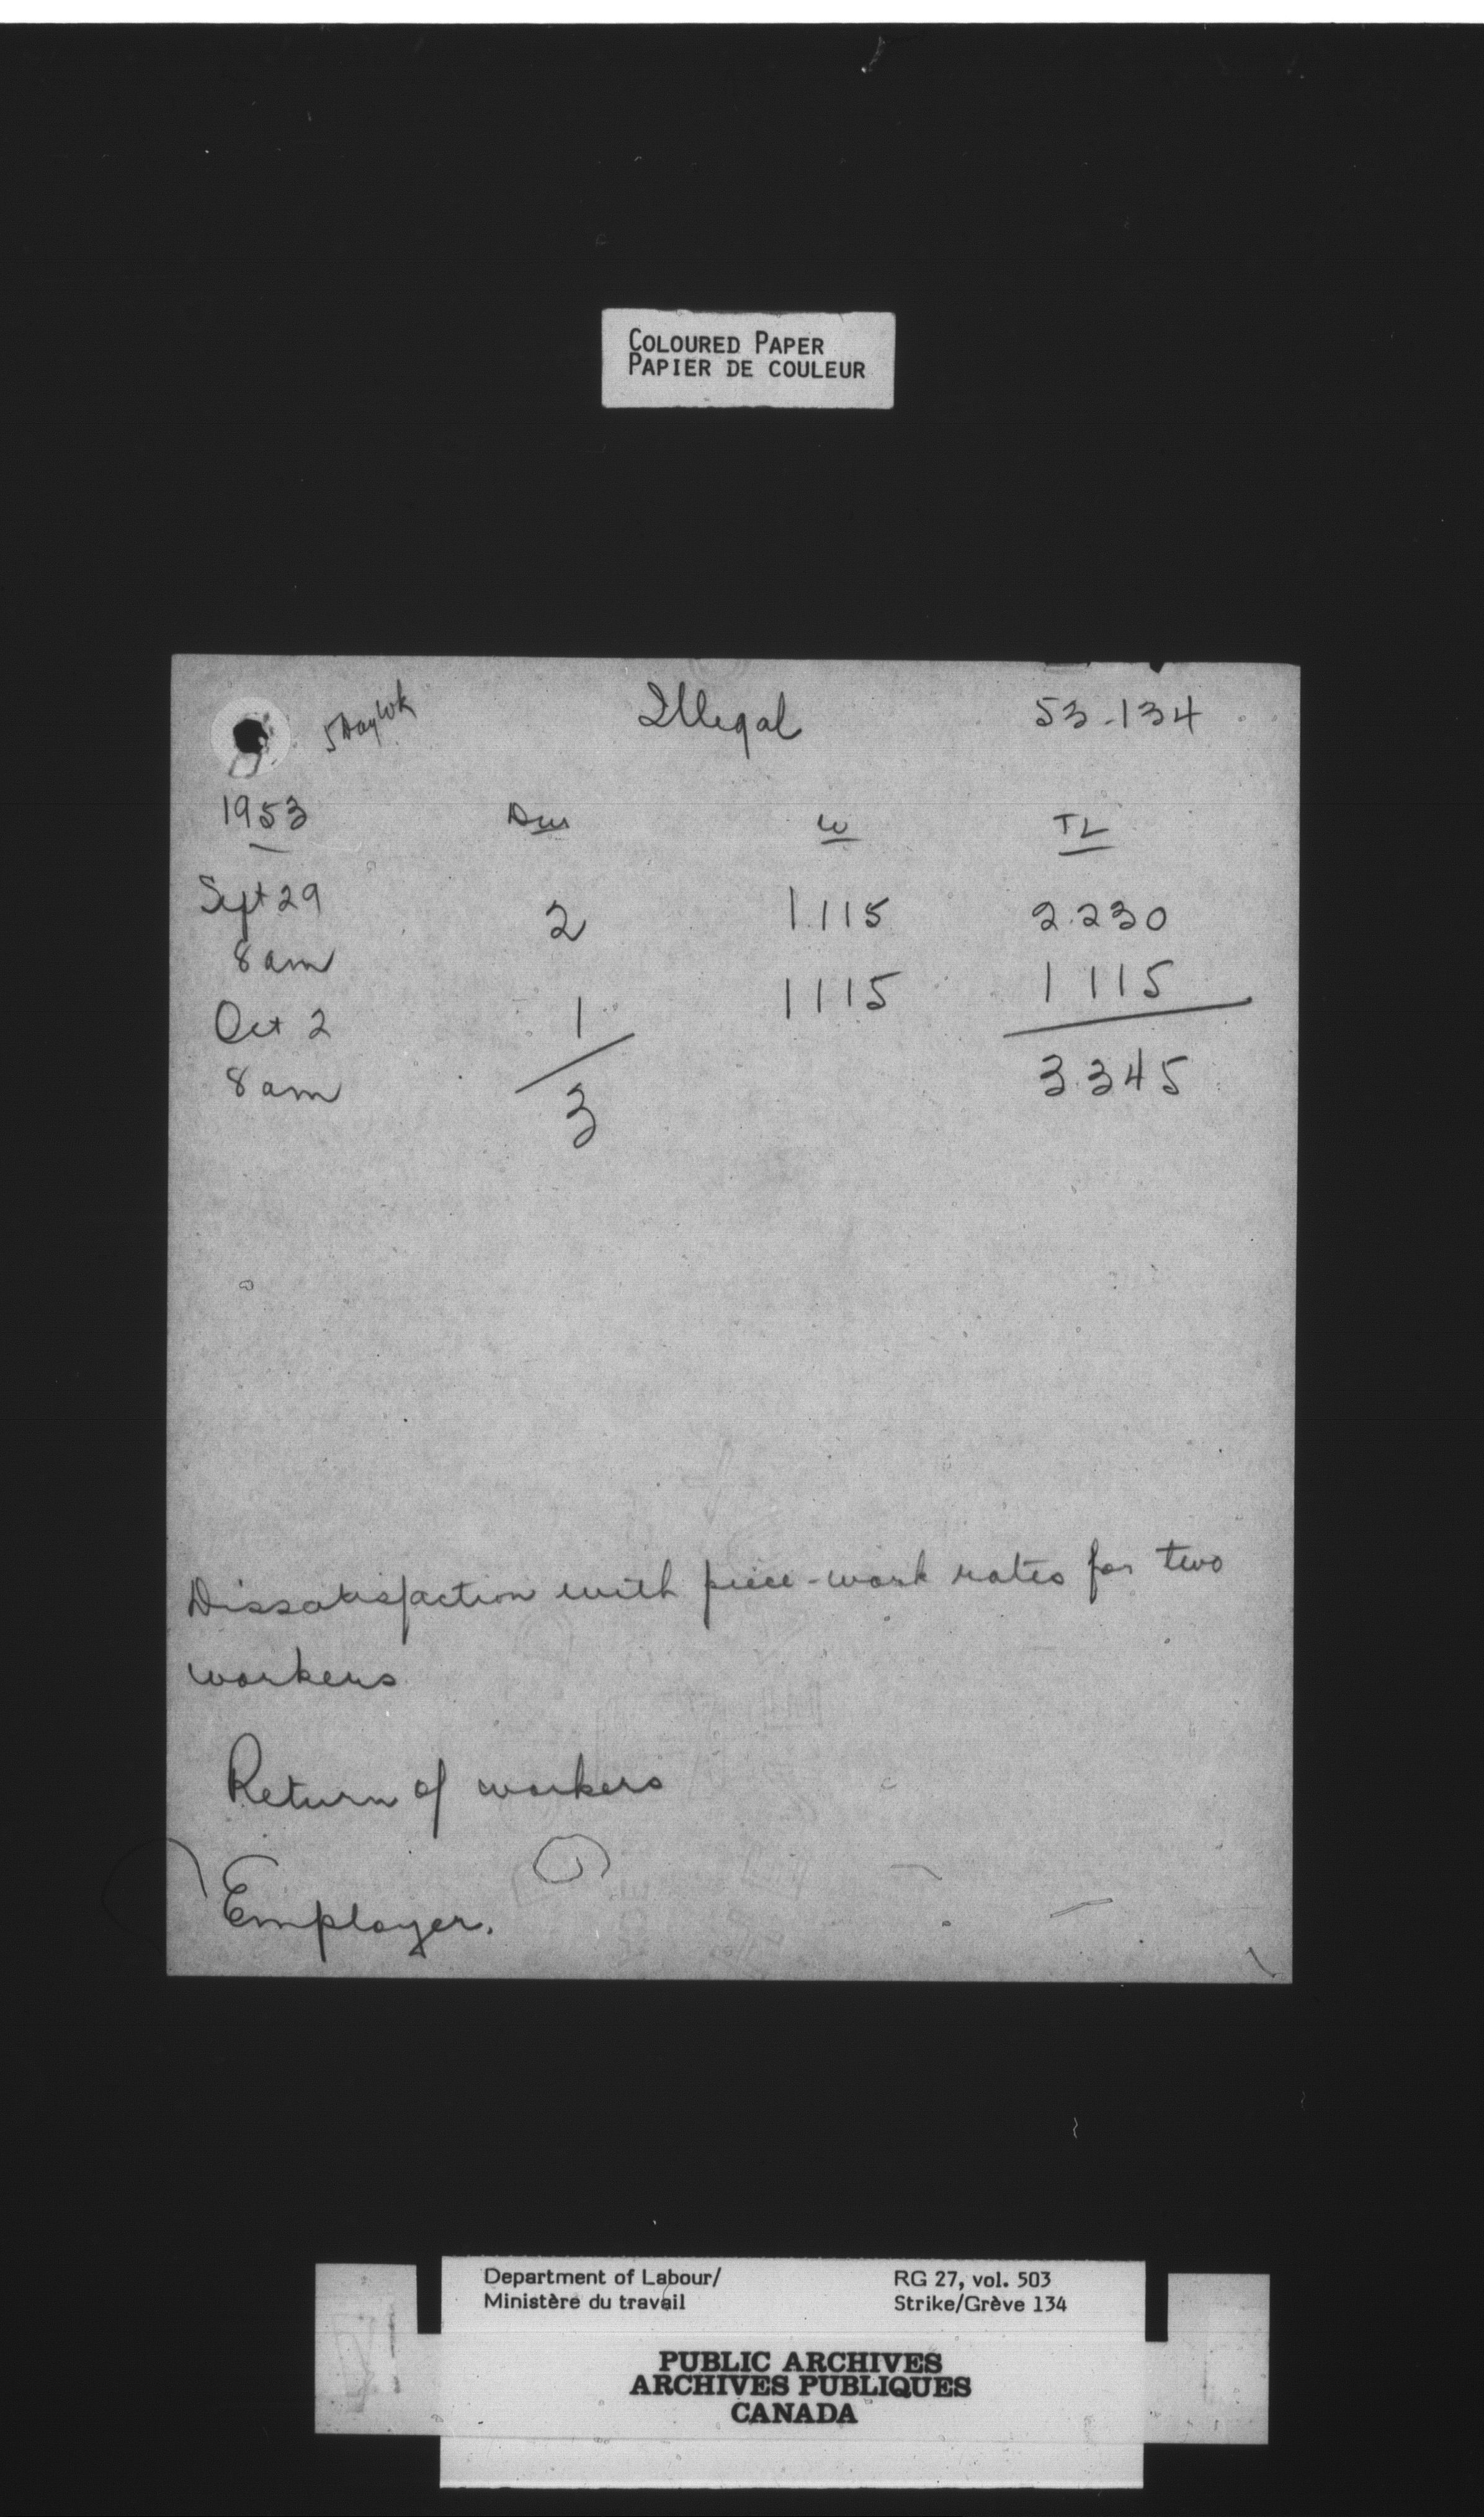 COLOURED PAPER
PAPIER DE COULEUR
5 Day Wk Illegal 53-134
1953 Dur W TL
Sept 29 2 1.115 2.230
8 am
1115 1 115
Oct 2 1
8 am 3 3.345
Dissatisfaction with piece-work rates for two
workers
Return of workers
Employer.
Department of Labour/ RG 27, vol. 503
Ministère du travail Strike/Grève 134
PUBLIC ARCHIVES
ARCHIVES PUBLIQUES
CANADA